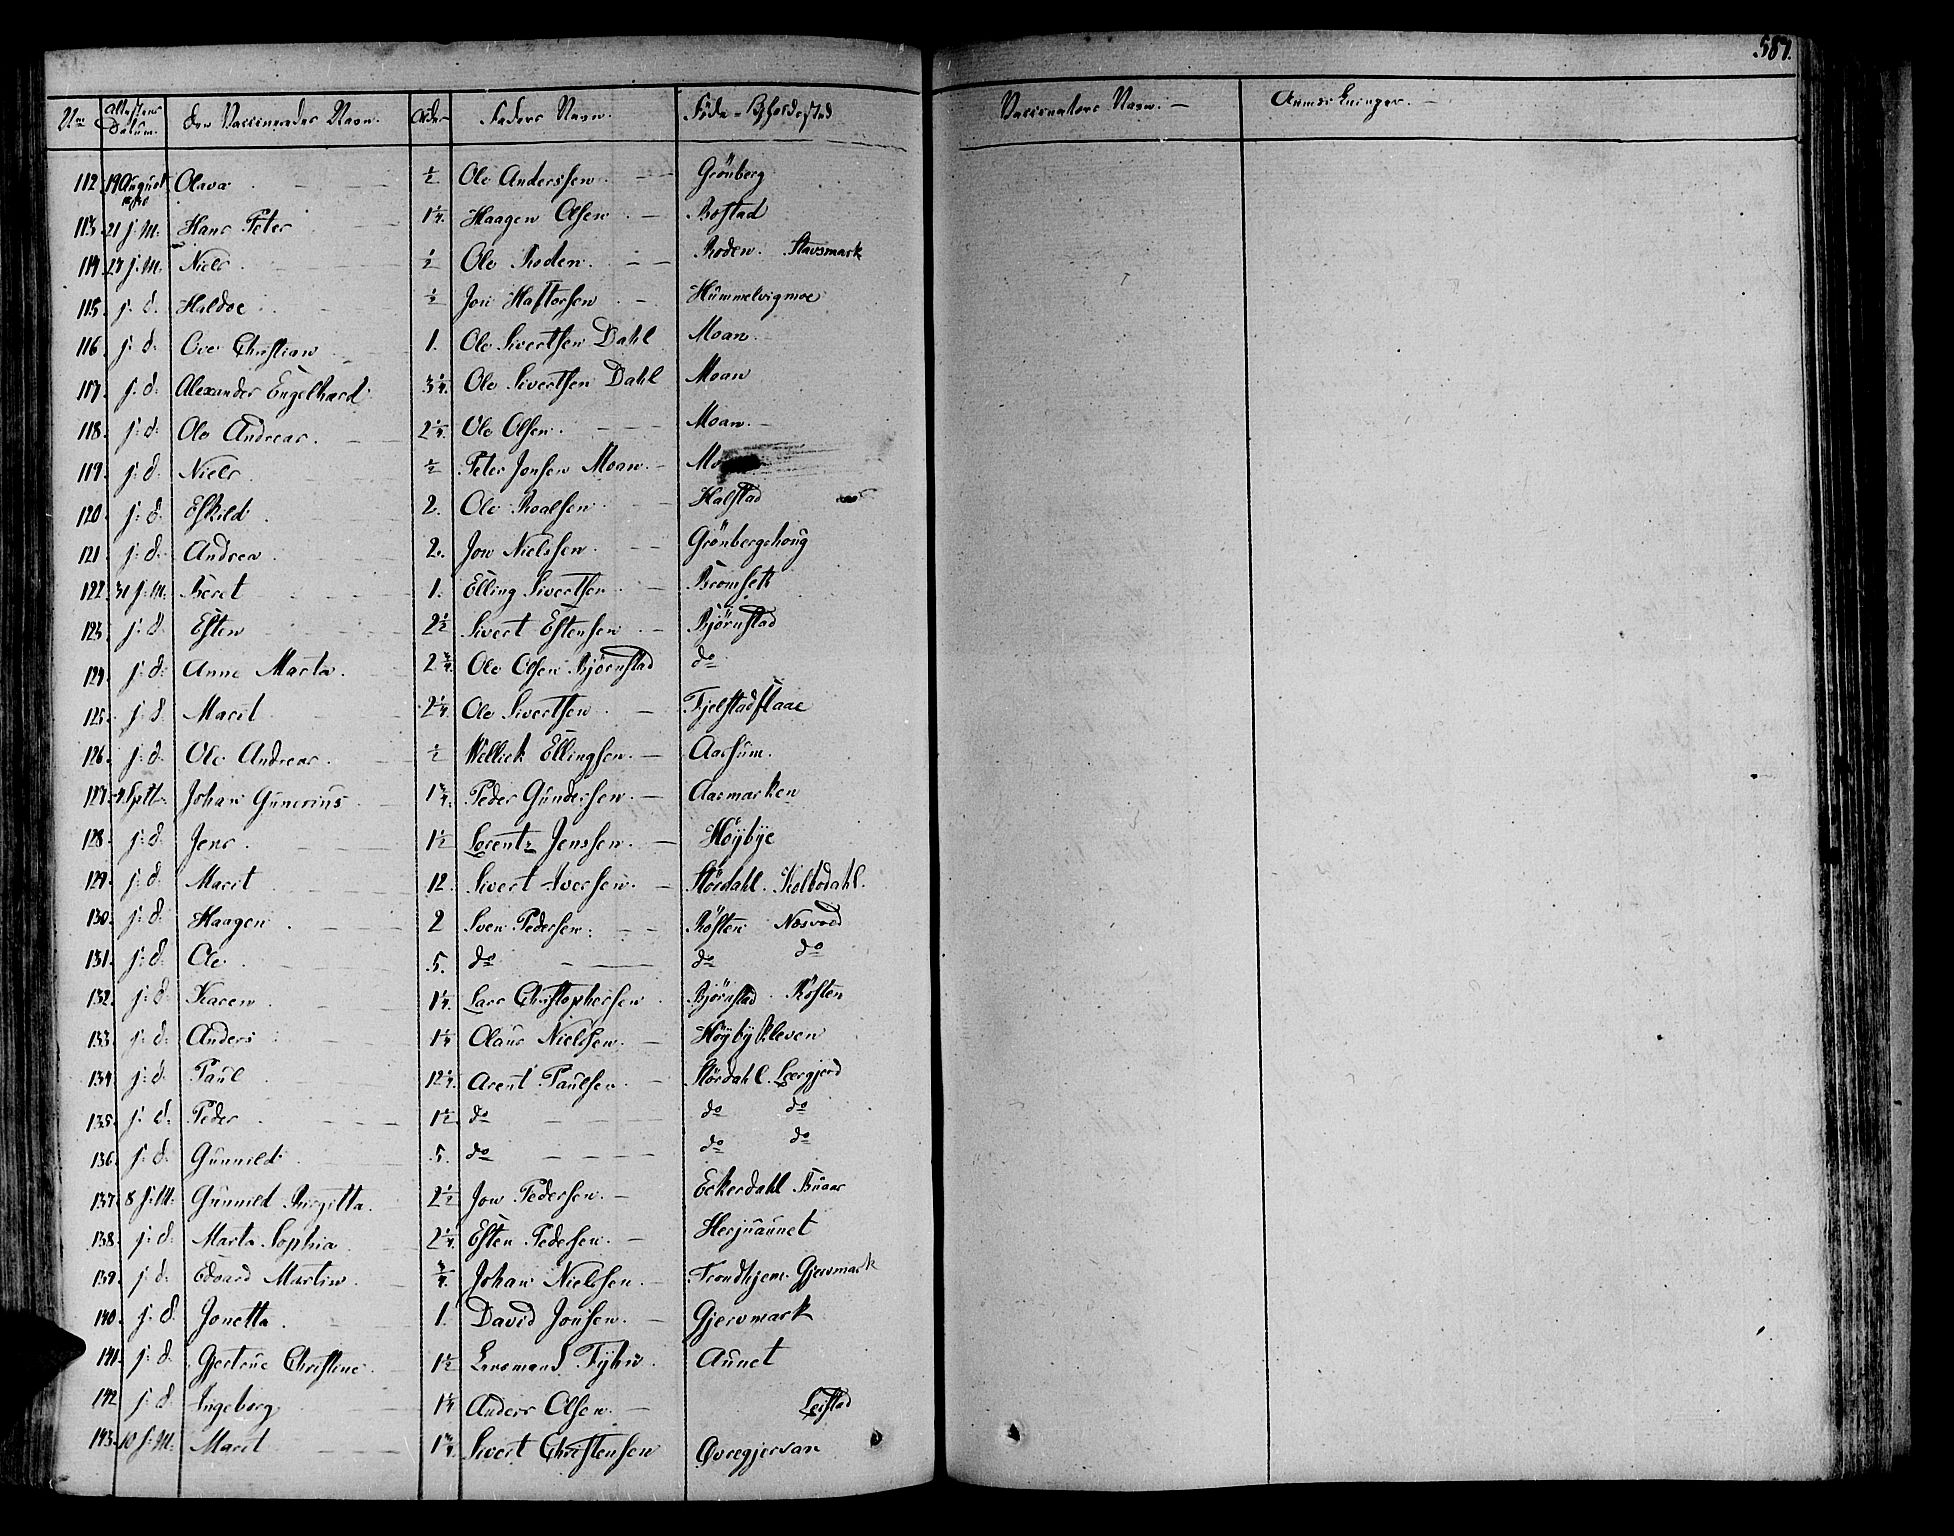 587.
No Attestens Datum. Den Vaccineredes Navn. Alder Faders Navn. Føde- Opholdssted Vaccinateurs Navn. Anmærkninger.
112. 19 August Olava ½ Ole Anderssen Grönberg
113. 21 s. M. Hans Peter 1¼ Haagen Olsen Bostad
114. 27 s. M. Niels ½ Ole Roden Roden. Stavsmark
115. s. d. Haldoe ½ Jon Haftorsen Hummelvigmoe
116. s. d. Ove Christian 1. Ole Sivertsen Dahl Moan
117. s. d. Alexander Engelhard 3¼ Ole Sivertsen Dahl Moan
118. s. d. Ole Andreas 2¼ Ole Olsen Moan
119. s. d. Niels ½ Peter Jonsen Moan Mo
120. s. d. Eskild 2. Ole Roalsen Halstad
121. s. d. Andrea 2. Jon Nielssen Grönbergshoug
122. 31 s. M. Beret 1. Elling Sivertsen Bromseth
123. s. d. Esten 2½ Sivert Estensen Björnstad
124. s. d. Anne Marta 2¾ Ole Olsen Björnstad do
125. s. d. Marit 2¼ Ole Sivertsen Fjelstadflaae
126. s. d. Ole Andreas ½ Willick Ellingsen Aarsum.
127. 4. Sptt. Johan Gunerius 1¾ Peder Gundersen Aarmarken
128. s. d. Jens 1½ Lorentz Jenssen Höybye
129. s. d. Marit 12. Sivert Iversen Stördahl. Kolbodahl.
130. s. d. Haagen 2 Sven Pedersen Rösten Nesvold
131. s. d. Ole 5. do do do
132. s. d. Karen 1¼ Lars Christophersen Björnstad Rösten
133. s. d. Anders 1¼ Olaus Nielssen Höybykleven
134. s. d. Paul 12¼ Arent Paulsen Stördahl. Leergjerd
135. s. d. Peder 1½ do do do
136. s. d. Gunnild 5. do do do
137. 8 s. M. Gunnild Birgitta 2½ Jon Pedersen Eckerdahl Buaas
138. s. d. Marta Sophia 2¼ Esten Pedersen Herjuaunet
139. s. d. Edvard Martin ¾ Johan Nielssen Trondhjem. Gjervmark
140. s. d. Jonetta 1. David Jonsen Gjervmark
141. s. d. Gjertrue Christine 1½ Lensmand Tyhn Aunet
142 s. d. Ingeborg 1¼ Anders Olsen Leistad
143. 10 s. M. Marit 1¾ Sivert Christensen Øvregjervan